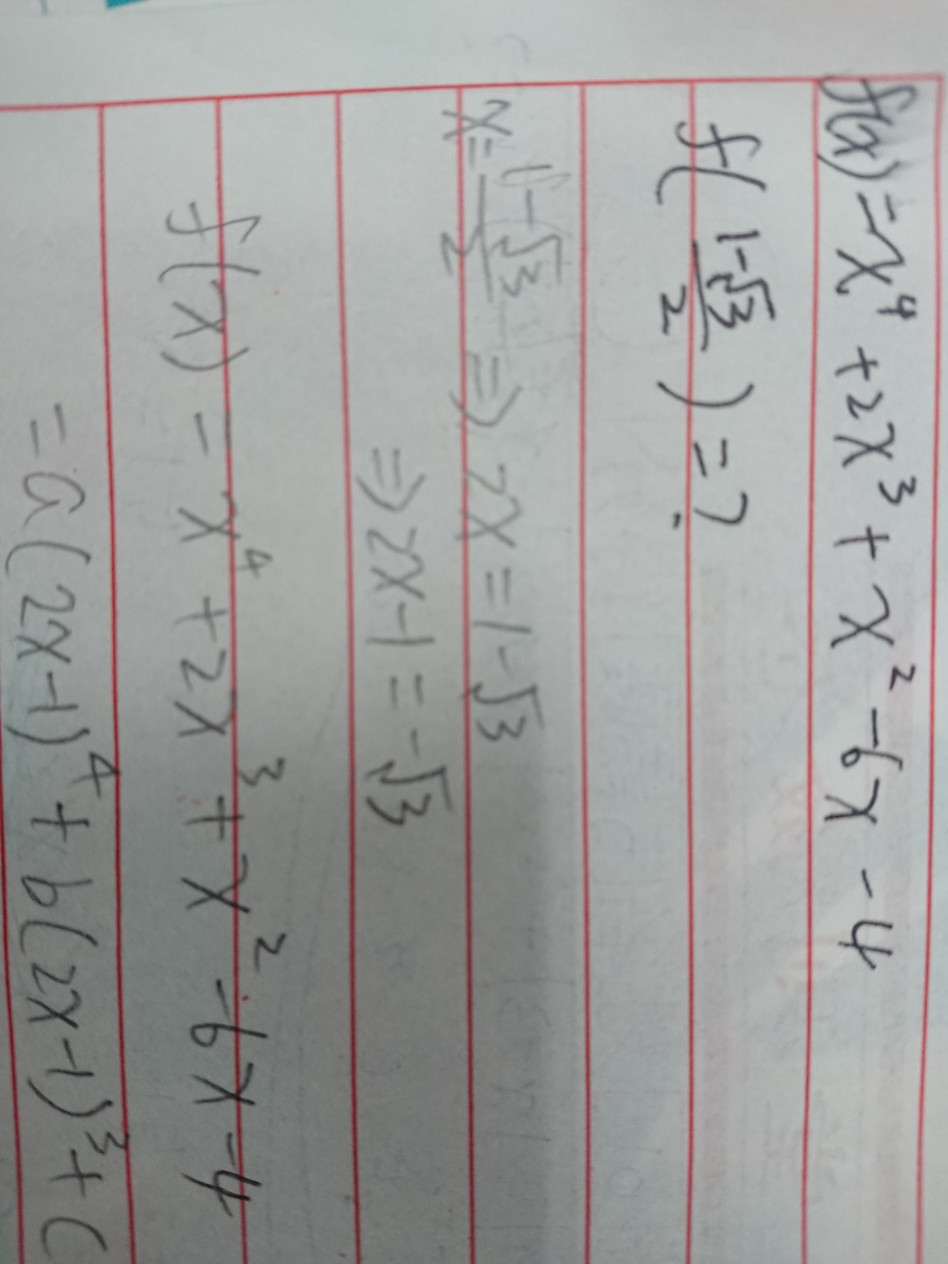 f(x) = x⁴ + 2x³ + x² - 6x - 4
f( (1-√3)/2 ) = ?
x = (1-√3)/2 ⇒ 2x = 1-√3
⇒ 2x-1 = -√3
f(x) = x⁴ + 2x³ + x² - 6x - 4
= a(2x-1)⁴ + b(2x-1)³ + c